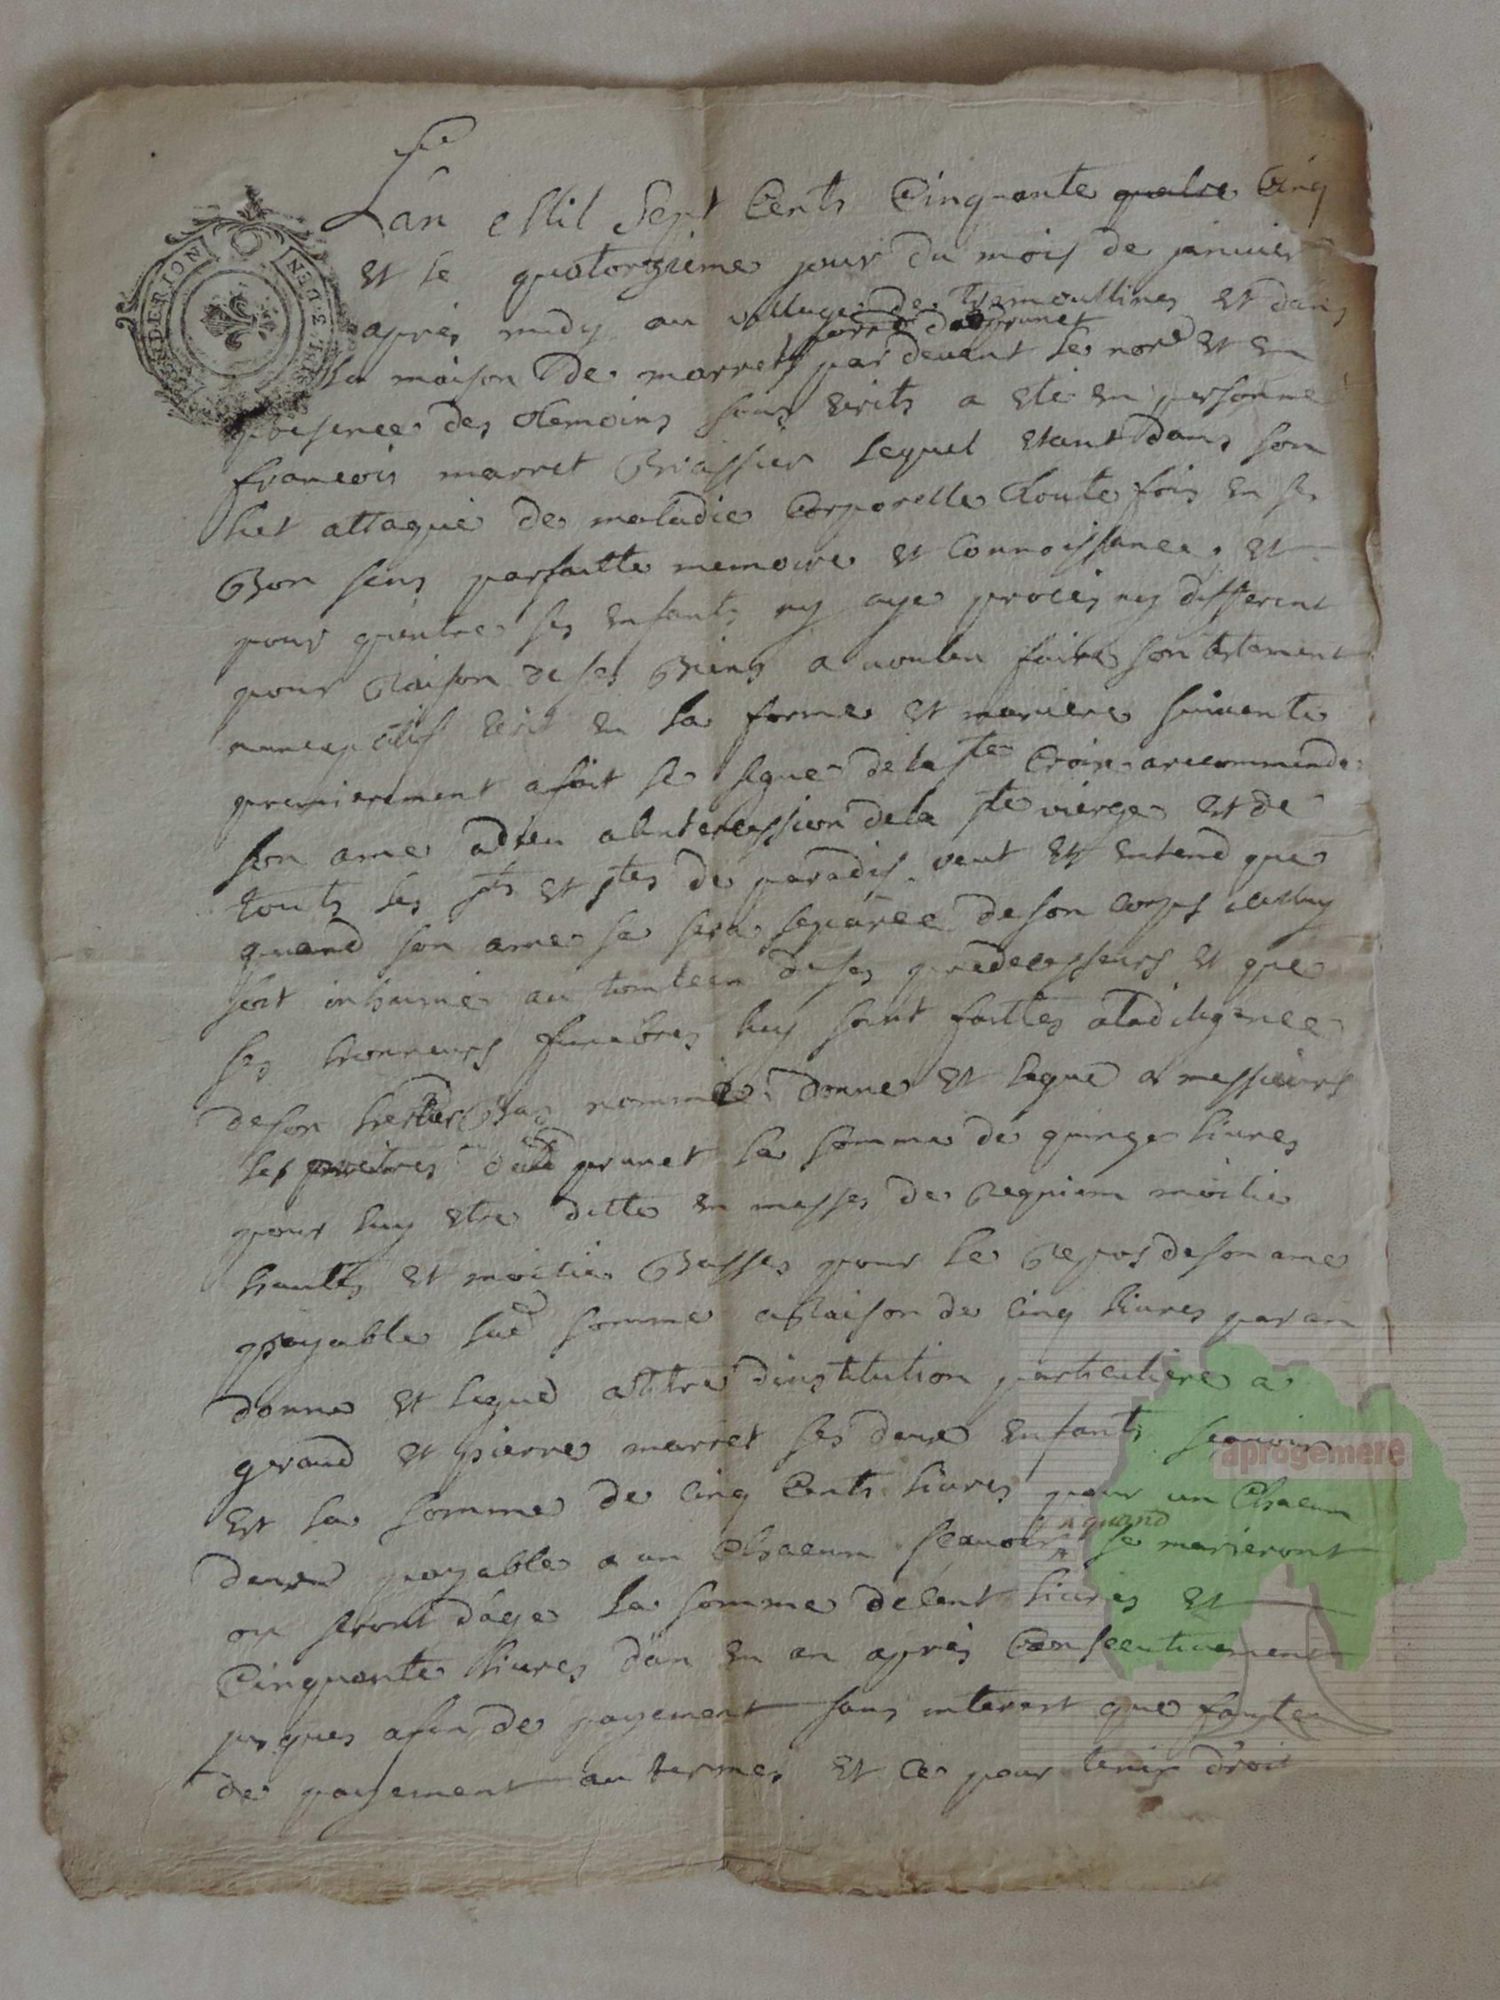 L'an Mil Sept Cents Cinquante quatre Cinq
et le quatorzieme jour du mois de janvier
apres midy au village de Tremoullines et dans
parroisse dud prunet
la maison de marret par devant le nore et en
presence des temoins sous ecrits a eté en personne
francois marret Brassier lequel etant dans son
liet attaqué de maladie Corporelle toute fois en ses
Bon sens parfaitte memoire et Connoissance, et
pour qu'entre ses enfants ny aye proces ny different
pour raison de ses Biens a voulen faire son testament
nuncupatif ecrit en la forme et maniere suivente
premierement a fait le signe de la ste Croix arecommende
son ame a dieu a lintercession de la ste vierge et de
touts les sts et stes de paradis, veut et entend que
quand son ame se sera separée de son corps icelluy
soit inhumé au tombeau de ses predecesseurs et que
ses honneurs funebres luy soint faittes a la diligence
de son hertier Bas nommé, donne et legue a messieurs
les pretres dud prunet la somme de quinze livres
pour luy etre ditte en messes de Requiem moitie
hautes et moitie Basses pour le Repos de son ame
payable lad somme a Raison de Cinq livres par an
donne et legue a titre dinstitution particuliere a
geraud et pierre marret ses deux enfants scavoir
Est la somme de Cinq Cents livres pour un Chacun
deux payable a un Chacun scavoir quand se marieront
ou seront dáge la somme de Cent livres et
Cinquante livres dan en an apres Consecutivement
jusques a fin de payement sans interest que faute
de payement au termes et ce pour tenir droit
aprogemere